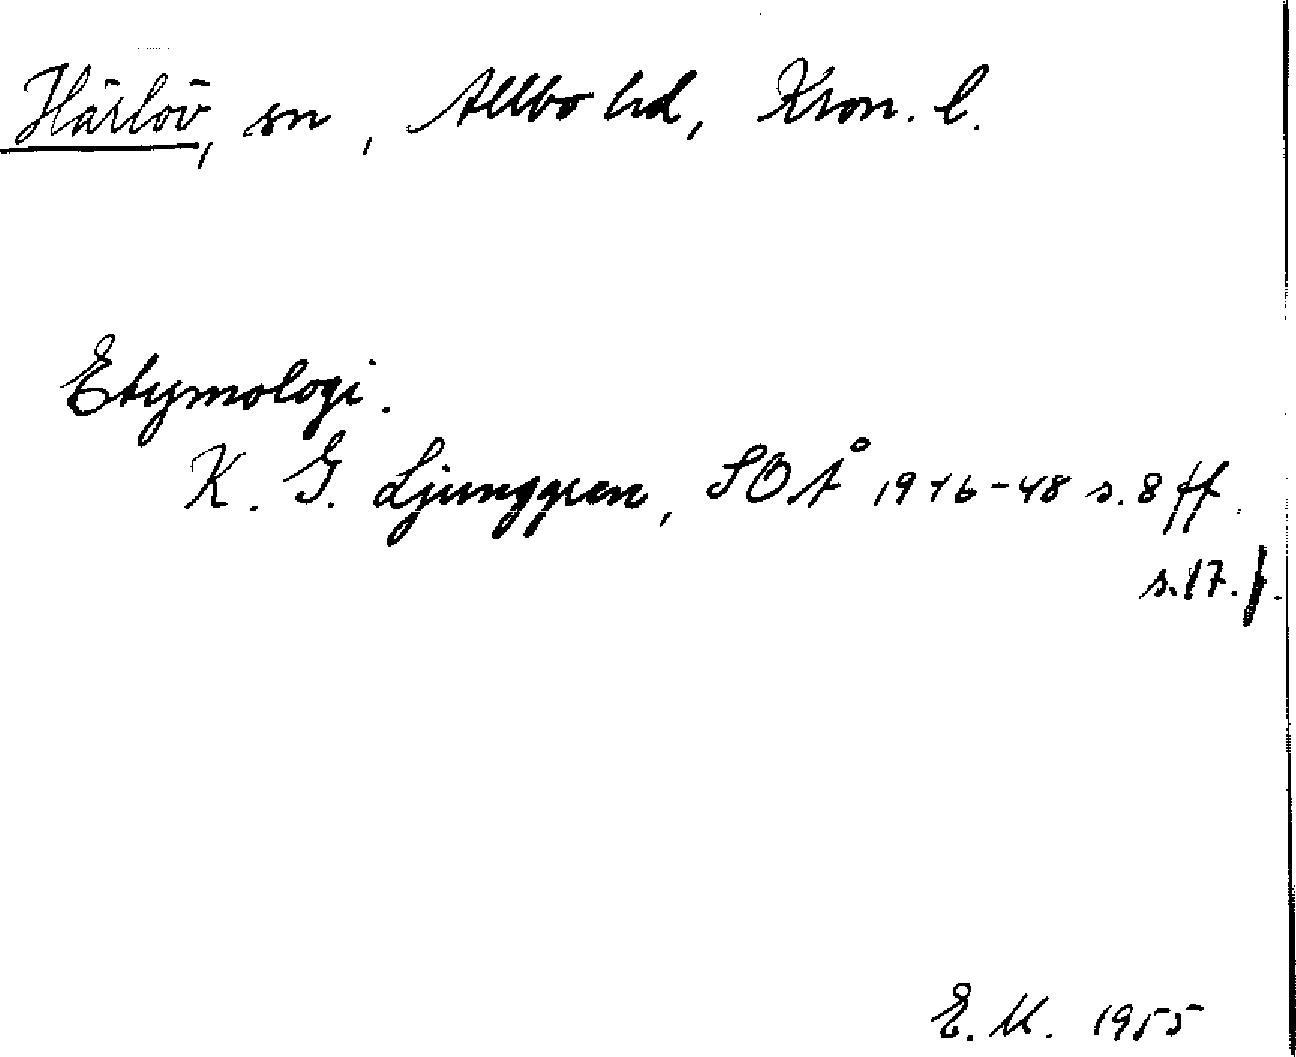 Härlöv, sn, Allbo hd, Kron. l.
Etymologi.
K. G. Ljunggren, SOÅ 1946-48 s. 8 ff.
s. 17. f.
E. M. 1955